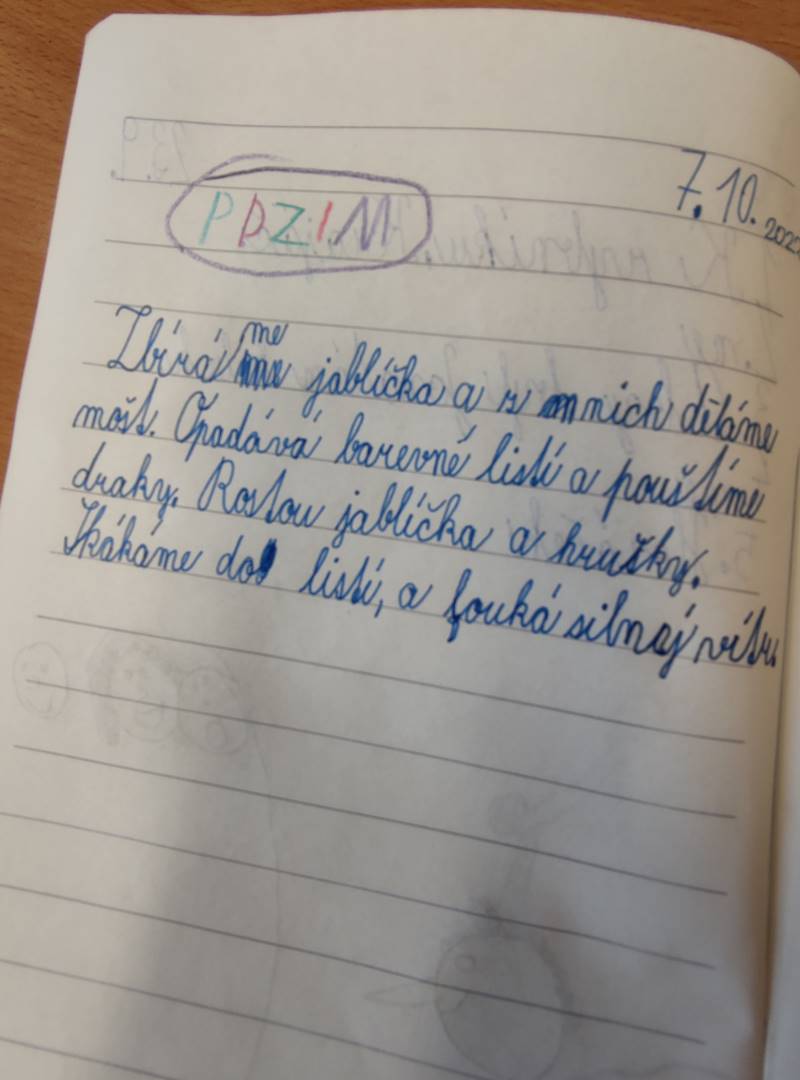 7. 10. 202
PDZIM
Zbírá me jablíčka a z nich děláme
mošt. Opadává barevné listí a pouštíme
draky. Rostou jablíčka a hrušky.
Skákáme do listí, a fouká silnaj vítr.